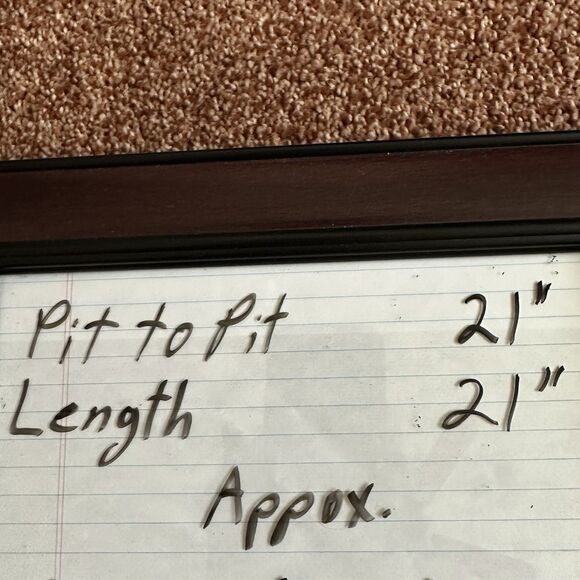 Pit to Pit 21"
Length 21"
Appox.